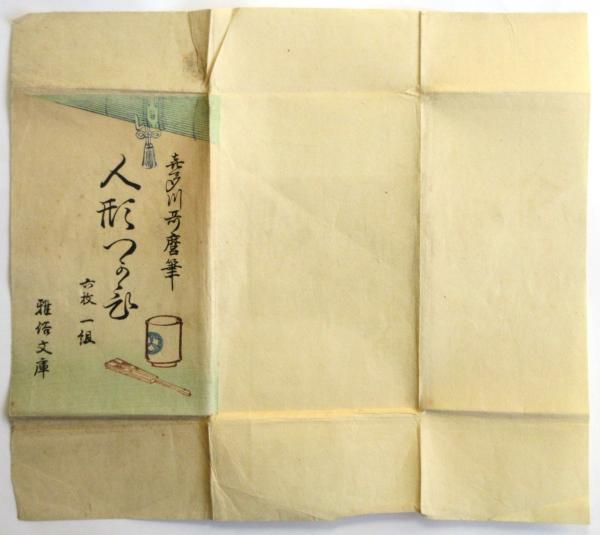 喜多川哥麿筆
人形つかひ
六枚一組
雅俗文庫